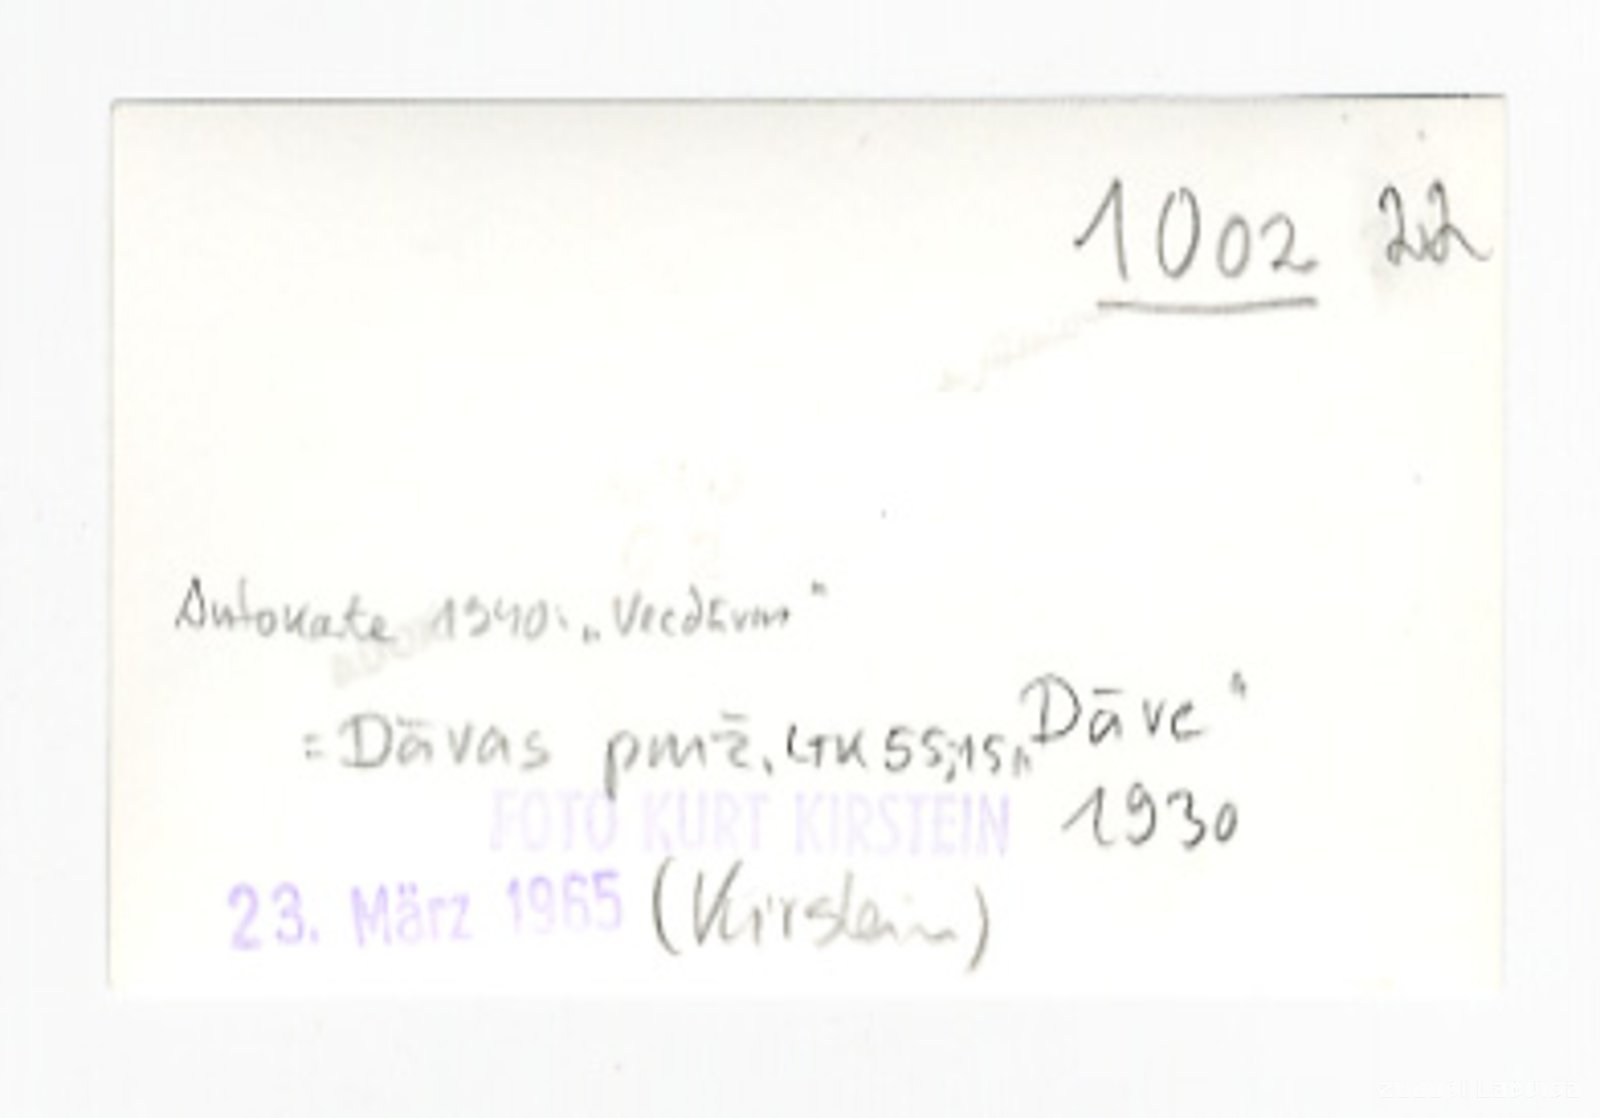 1002 22
Autokate 1940: „Vecdāvas"
= Dāvas pmž. LTK 55;15 „Dāve"
1930
FOTO KURT KIRSTEIN
23. März 1965 (Kirstein)